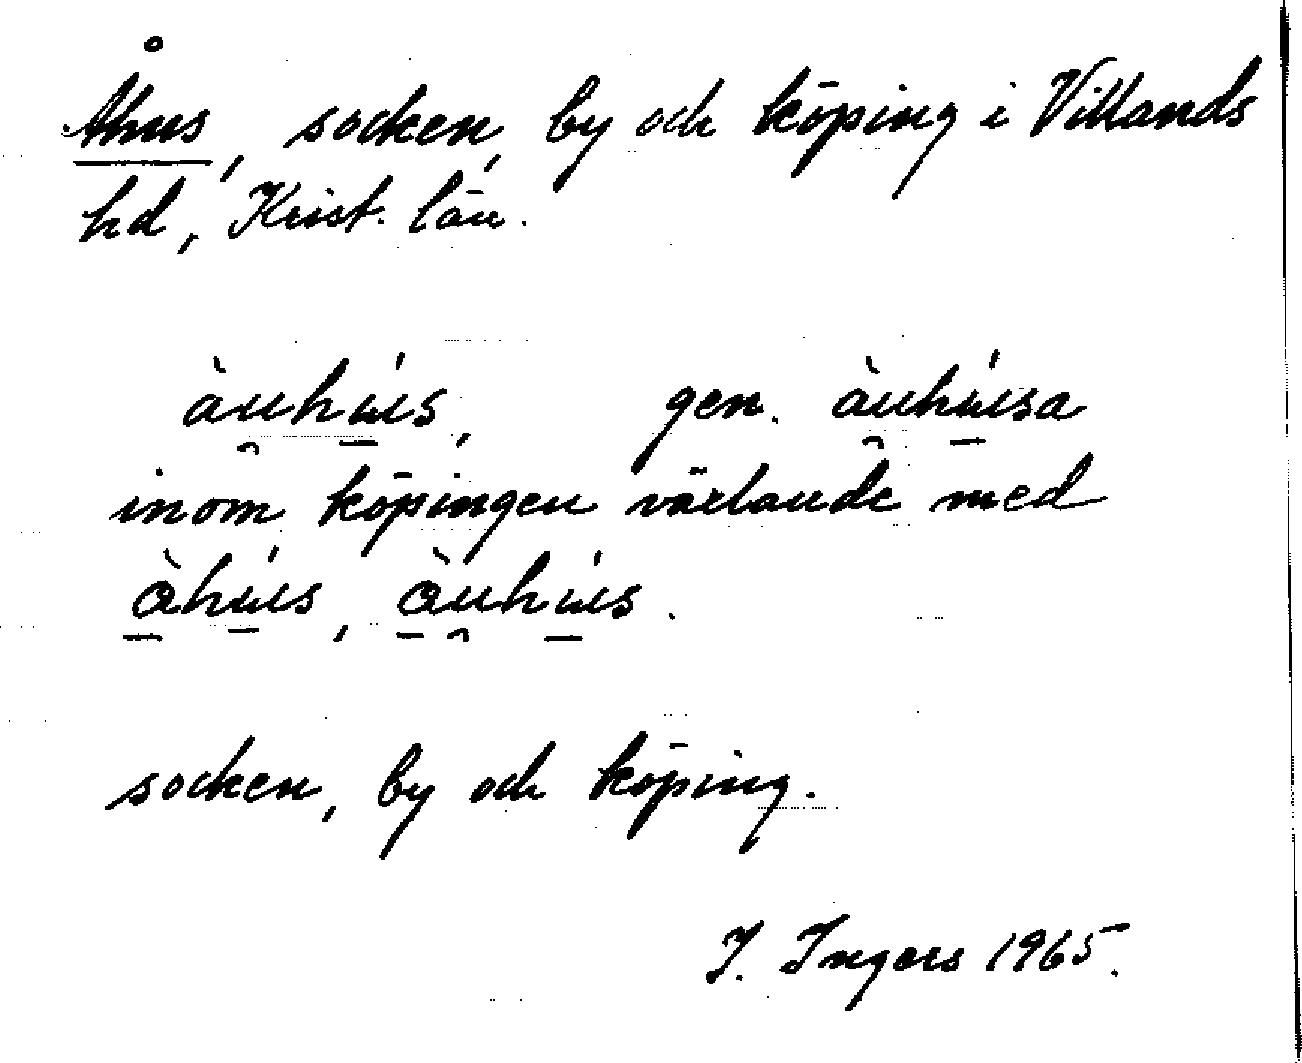 Åhus, socken, by och köping i Villands
hd, Krist. län.
àu̯hú̱s, gen. àu̯hú̱sa
inom köpingen växlande med
å̱̀hú̱s, å̱̀u̯hú̱s.
socken, by och köping.
I. Ingers 1965.